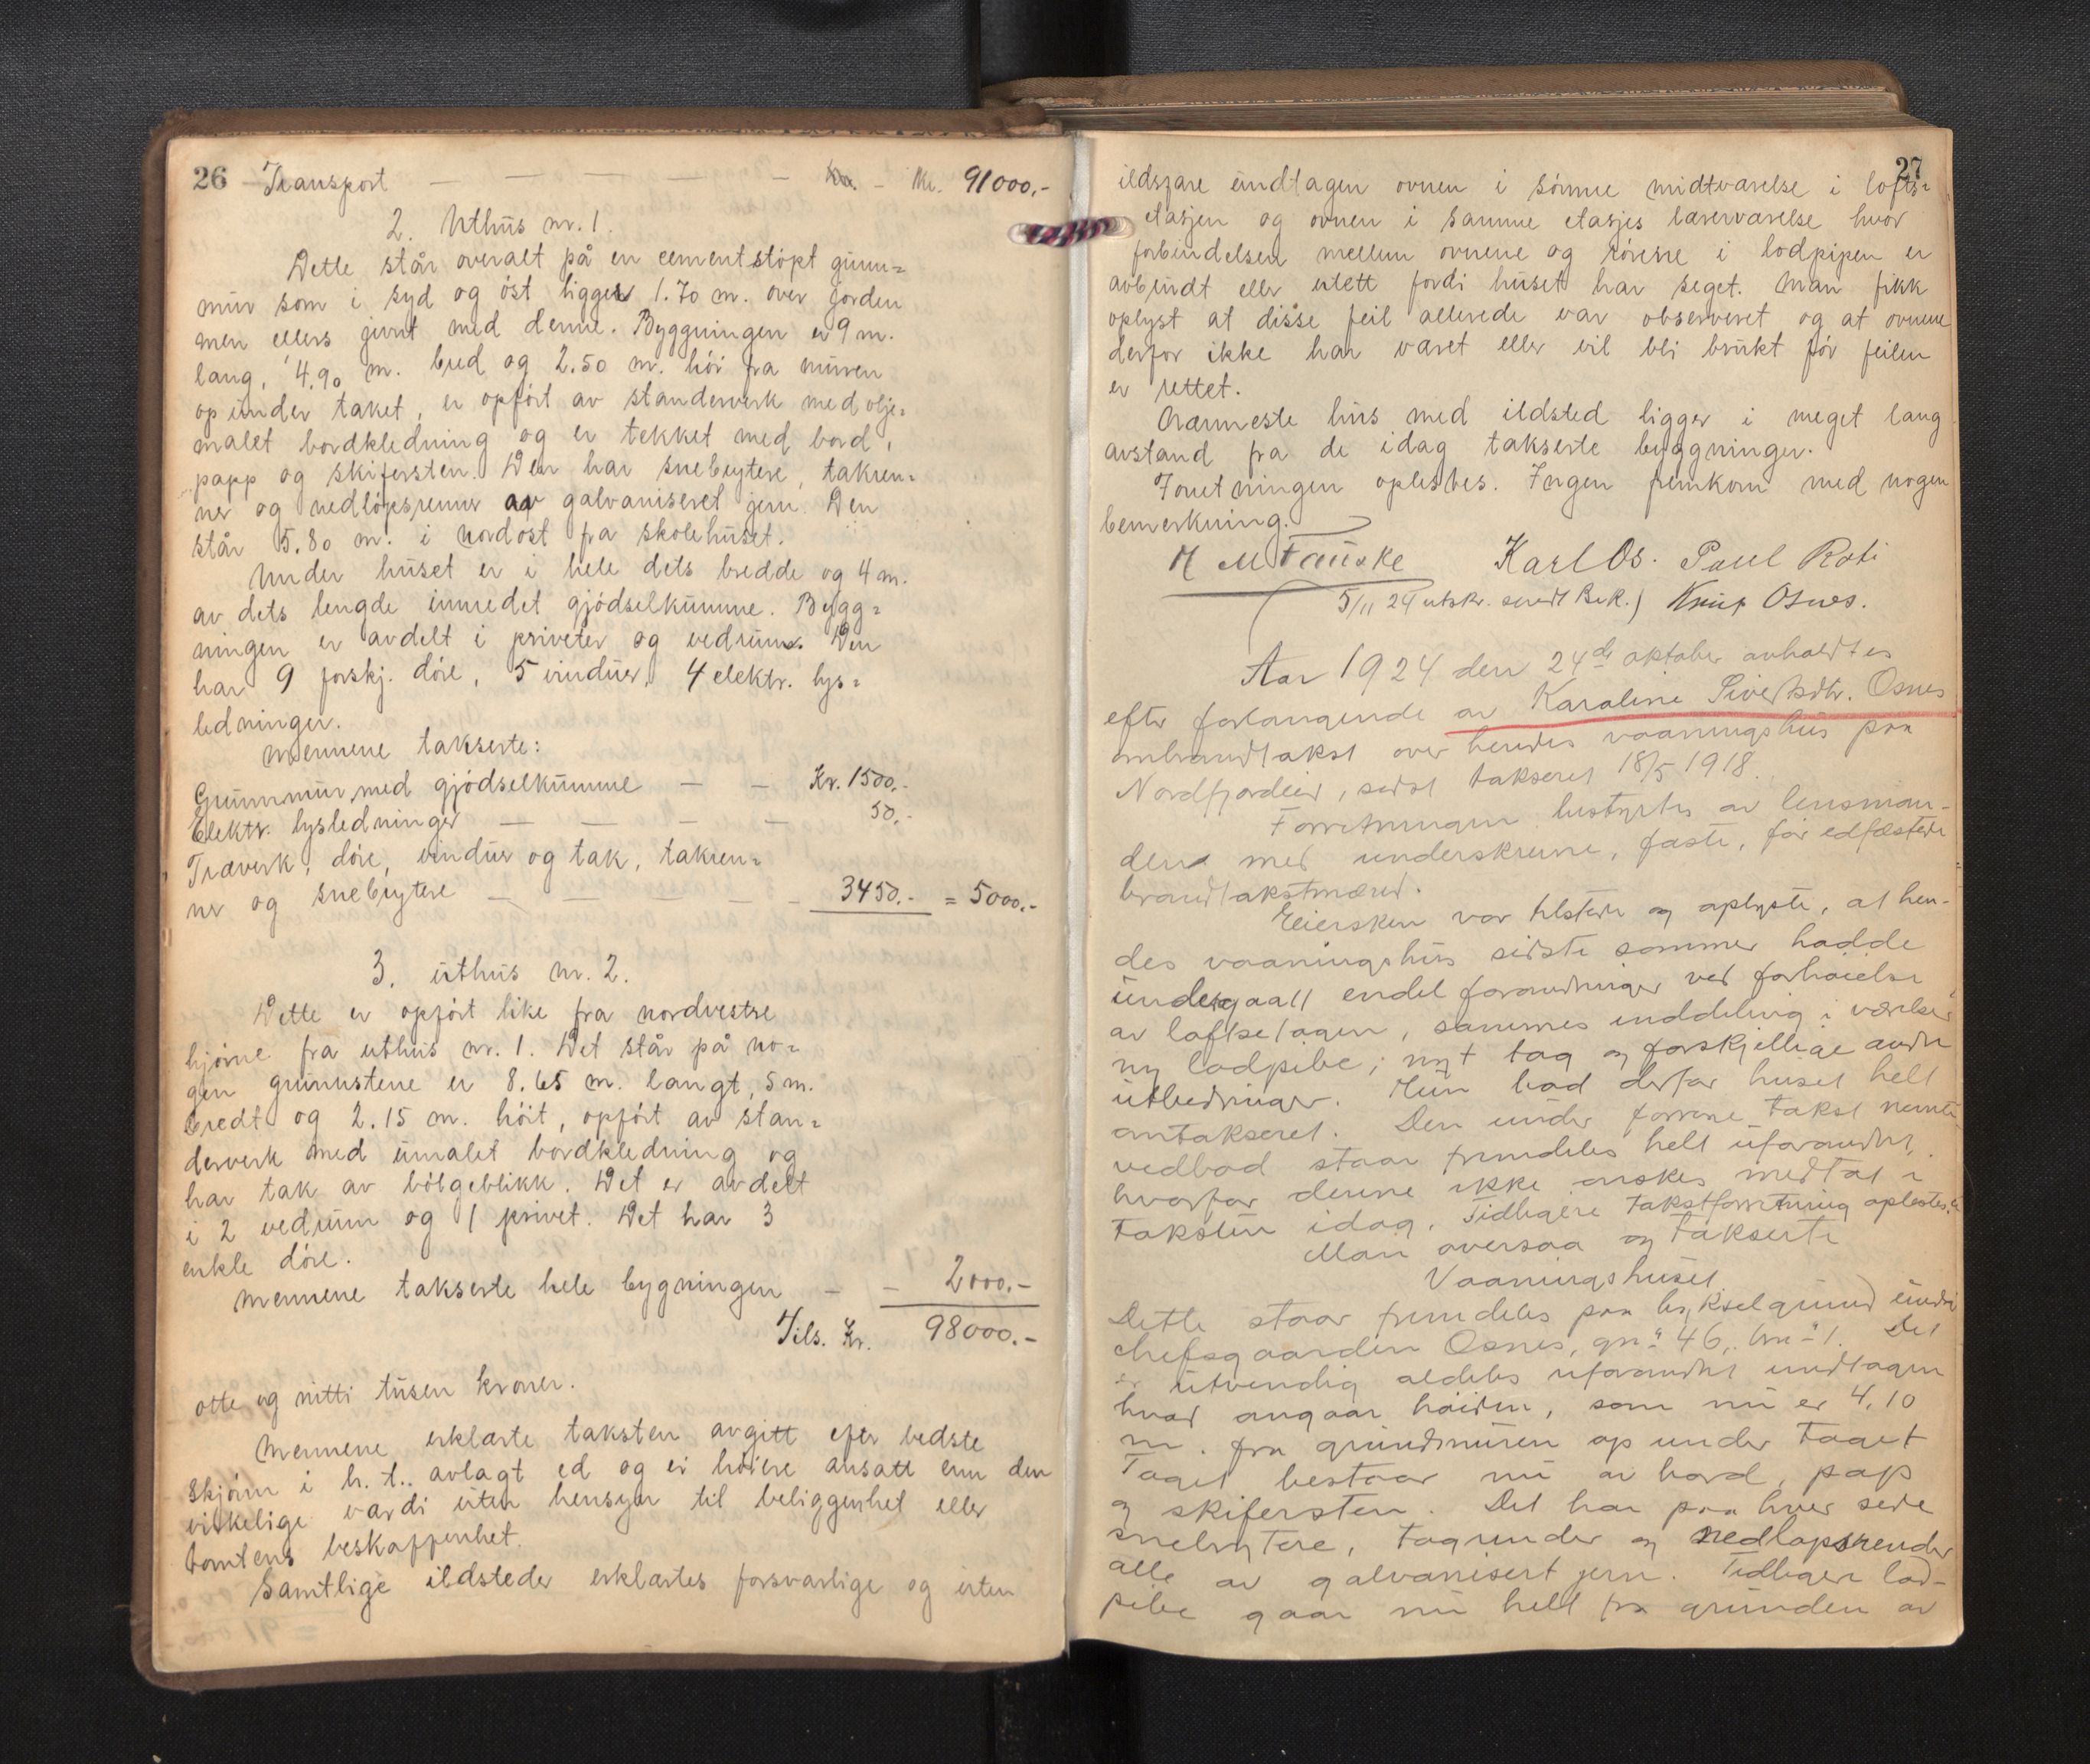 26 Transport — — — — — — Kr. 91000,-
2. Uthus nr. 1.
Dette står overalt på en cementstöpt grunn=
mur som i syd og öst ligger 1.70 m. over jorden
men ellers jevnt med denne. Byggningen er 9 m.
lang, 4.90 m. bred og 2.50 m. höi fra muren
op under taket, er opfört av standerverk med olje=
malet bordkledning og er tekket med bord,
papp og skifersten. Den har snebrytere, takren=
ner og nedlöpsrenner av galvaniseret jern. Den
står 5.80 m. i nordost fra skolehuset.
Under huset er i hele dets bredde og 4 m.
av dets lengde innredet gjödselkumme. Bygg=
ningen er avdelt i priveter og vedrum. Den
har 9 forskj. döre, 5 vinduer, 4 elektr. lys=
ledninger.
Mennene takserte:
Grunnmur med gjödselkumme — — Kr. 1500,-
Elektr. lysledninger — — — — 50,-
Træverk, döre, vinduer og tak, takren=
ner og snebrytere — — — — - 3450.- = 5000.-
3. uthus nr. 2.
Dette er opfört like fra nordvestre
hjörne fra uthus nr. 1. Det står på no=
gen grunnstene er 8.65 m. langt, 5 m.
bredt og 2.15 m. höit, opfört av stan=
derverk med umalet bordkledning og
har tak av bölgeblikk. Det er avdelt
i 2 vedrum og 1 privet. Det har 3
enkle döre.
Mennene takserte hele bygningen - - 2000.-
Tils. Kr. 98000.-
otte og nitti tusen kroner.
Mennene erklærte taksten avgitt efter bedste
skjönn i h. t. avlagt ed og ei höiere ansatt enn den
virkelige værdi uten hensyn til beliggenhet eller
tomtens beskaffenhet.
Samtlige ildsteder erklærtes forsvarlige og uten
27
ildsfare undtagen ovnen i sönnre midtværelse i lofts=
etasjen og ovnen i samme etasjes lærerværelse hvor
forbindelsen mellem ovnene og rörene i lodpipen er
avbrudt eller utett fordi huset har seget. Man fikk
oplyst at disse feil allerede var observeret og at ovnene
derfor ikke har været eller vil bli brukt för feilen
er rettet.
Nærmeste hus med ildsted ligger i meget lang
avstand fra de idag takserte byggninger.
Forretningen oplestes. Ingen fremkom med nogen
bemerkning.
M Fauske Karl Os. Paul Roti
5/11 24 utskr. sendt B.k.) Knut Osnes.
Aar 1924 den 24de oktober avholdtes
efter forlangende av Karaline Sivertsdtr. Osnes
ombrandtakst over hendes vaaningshus paa
Nordfjordeid, sidst takseret 18/5 1918.
Forretningen bestyrtes av lensman-
den med underskrevne, faste, før edfæstede
brandtakstmænd.
Eiersken var tilstede og oplyste, at hen-
des vaaningshus sidste sommer hadde
undergaatt endel forandringer ved forhøielse
av loftsetagen, sammes inddeling i værelser
ny lodpibe, nyt tag og forskjellige andre
utbedringer. Hun bad derfor huset helt
omtakseret. Den under forrene takst nævnte
vedbod staar fremdeles helt uforandret,
hvorfor denne ikke ønskes medtat i
taksten idag. Tidligere takstforretning oplestes.
Man oversaa og takserte
Vaaningshuset
Dette staar fremdeles paa bykselgrund under
chefsgaarden Osnes, gn: 46, bn: 1. Det
er utvendig aldeles uforandret undtagen
hvad angaar høiden, som nu er 4,10
m. fra grundmuren op under taget
Taget bestaar nu av bord, pap
og skifersten. Det har paa hver side
snebrytere, tagrender og nedløpsrender
alle av galvanisert jern. Tidligere lod-
pibe gaar nu helt fra grunden av